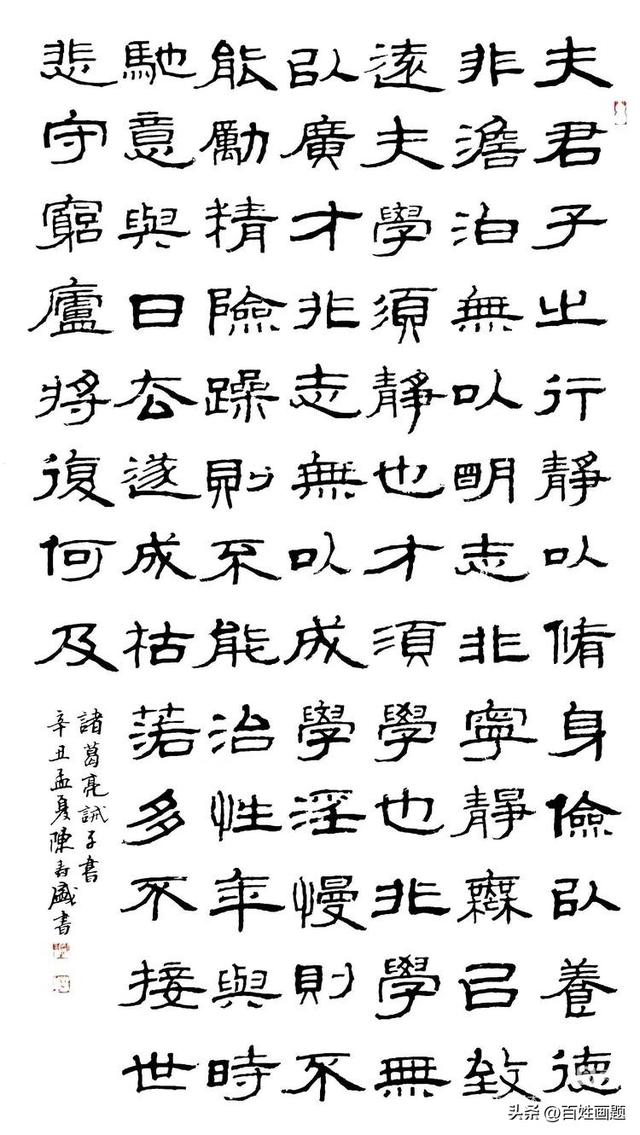 夫君子之行靜以脩身儉以養德
非澹泊無以明志非寧靜無以致
遠夫學須靜也才須學也非學無
以廣才非志無以成學淫慢則不
能勵精險躁則不能治性年與時
馳意與日去遂成枯落多不接世
悲守窮廬將復何及
諸葛亮誡子書
辛丑孟夏陳寿盛書
头条 @百姓画题